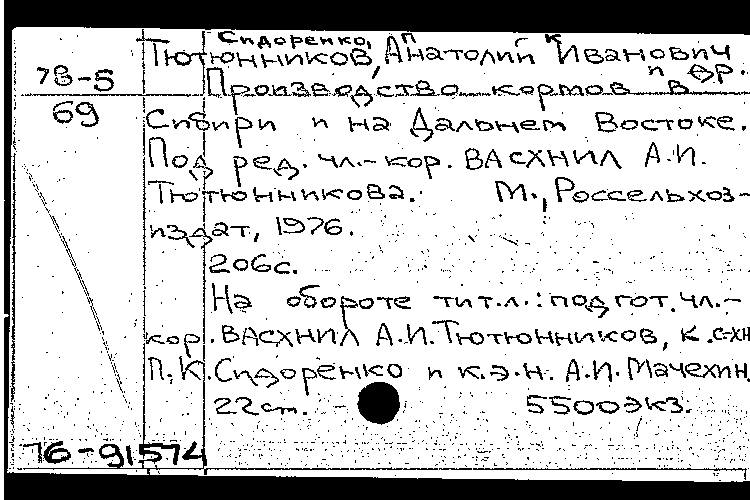 Сидоренко, П К
Тютюнников, Анатолий Иванович и др.
78-5
Производство кормов в
69
Сибири и на Дальнем Востоке.
Под ред. чл.-кор. ВАСХНИЛ А.И.
Тютюнникова. М., Россельхоз-
издат, 1976.
206с.
На обороте тит.л.: подгот. чл.-
кор. ВАСХНИЛ А.И. Тютюнников, к.с-хн
П.К. Сидоренко и к.э.н. А.И. Мачехин.
22см. - 5500экз.
76-91574